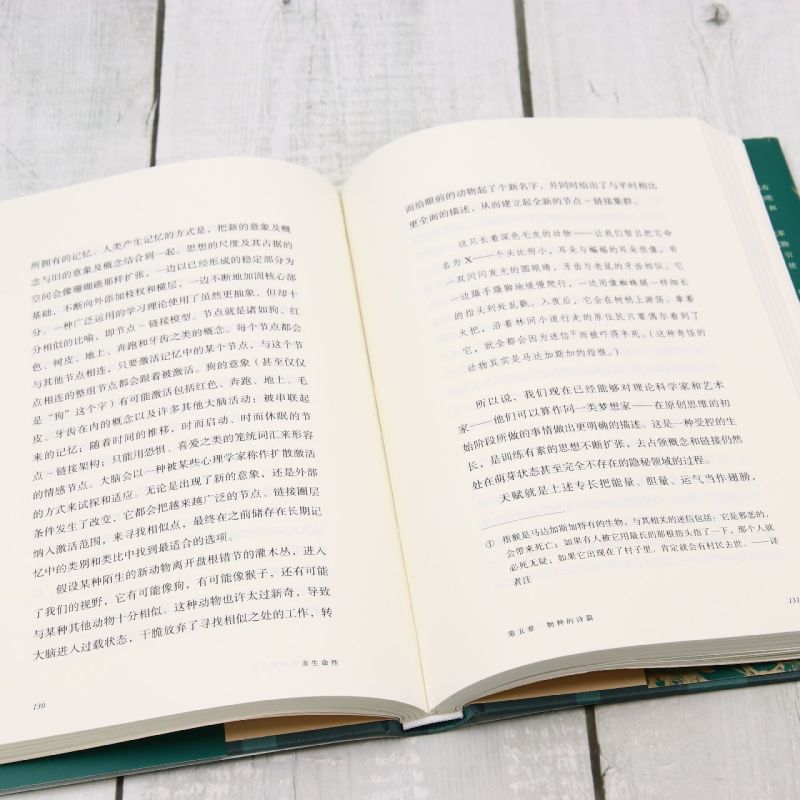 所拥有的记忆。人类产生记忆的方式是，把新的意象及概
念与旧的意象及概念结合到一起。思想的尺度及其占据的
空间会像珊瑚礁那样扩张，一边以已经形成的稳定部分为
基础，不断向外添加枝杈和横层，一边不断地加固核心部
分。一种广泛运用的学习理论使用了虽然更抽象，但却十
分相似的比喻，即节点－链接模型。节点就是诸如狗、红
色、树皮、地上、奔跑和牙齿之类的概念。每个节点都会
与其他节点相连，只要激活记忆中的某个节点，与这个节
点相连的整组节点都会跟着被激活。狗的意象（甚至仅仅
是“狗”这个字）有可能激活包括红色、奔跑、地上、毛
皮、牙齿在内的概念以及许多其他大脑活动；被串联起
来的记忆；随着时间的推移，时而启动、时而休眠的节
点－链接架构；只能用恐惧、喜爱之类的笼统词汇来形容
的情感节点。大脑会以一种被某些心理学家称作扩散激活
的方式来试探和适应。无论是出现了新的意象，还是外部
条件发生了改变，它都会把越来越广泛的节点、链接圈层
纳入激活范围，来寻找相似点，最终在之前储存在长期记
忆中的类别和类比中找到最适合的选项。
假设某种陌生的新动物离开盘根错节的灌木丛，进入
了我们的视野，它有可能像狗，有可能像猴子，还有可能
与某种其他动物十分相似。这种动物也许太过新奇，导致
大脑进入过载状态，干脆放弃了寻找相似之处的工作，转
亲生命性
130
而给眼前的动物起了个新名字，并同时给出了与平时相比
更全面的描述，从而建立起全新的节点－链接集群。
这只长着深色毛皮的动物——让我们暂且把它命
名为X——个头比狗小，耳朵与蝙蝠的耳朵很像，有
一双闪闪发光的圆眼睛，牙齿与老鼠的牙齿相似。它
一边蹑手蹑脚地缓慢爬行，一边用像蜘蛛腿一样细长
的指头到处乱戳。入夜后，它会在树梢上游荡。拿着
火把，沿着林间小道行走的原住民只要偶尔看到了
它，就全都会因为迷信①而被吓得半死。（这种奇怪的
动物其实是马达加斯加的指猴。）
所以说，我们现在已经能够对理论科学家和艺术
家——他们可以算作同一类梦想家——在原创思维的初
始阶段所做的事情做出更明确的描述。这是一种受控的生
长，是训练有素的思想不断扩张，去占领概念和链接仍然
处在萌芽状态甚至完全不存在的隐秘领域的过程。
天赋就是上述专长把能量、胆量、运气当作翅膀，
① 指猴是马达加斯加特有的生物，与其相关的迷信包括：它是邪恶的，
会带来死亡；如果有人被它用最长的那根指头指了一下，那个人就
必死无疑；如果它出现在了村子里，肯定就会有村民去世。——译
者注
第五章 物种的诗篇
131